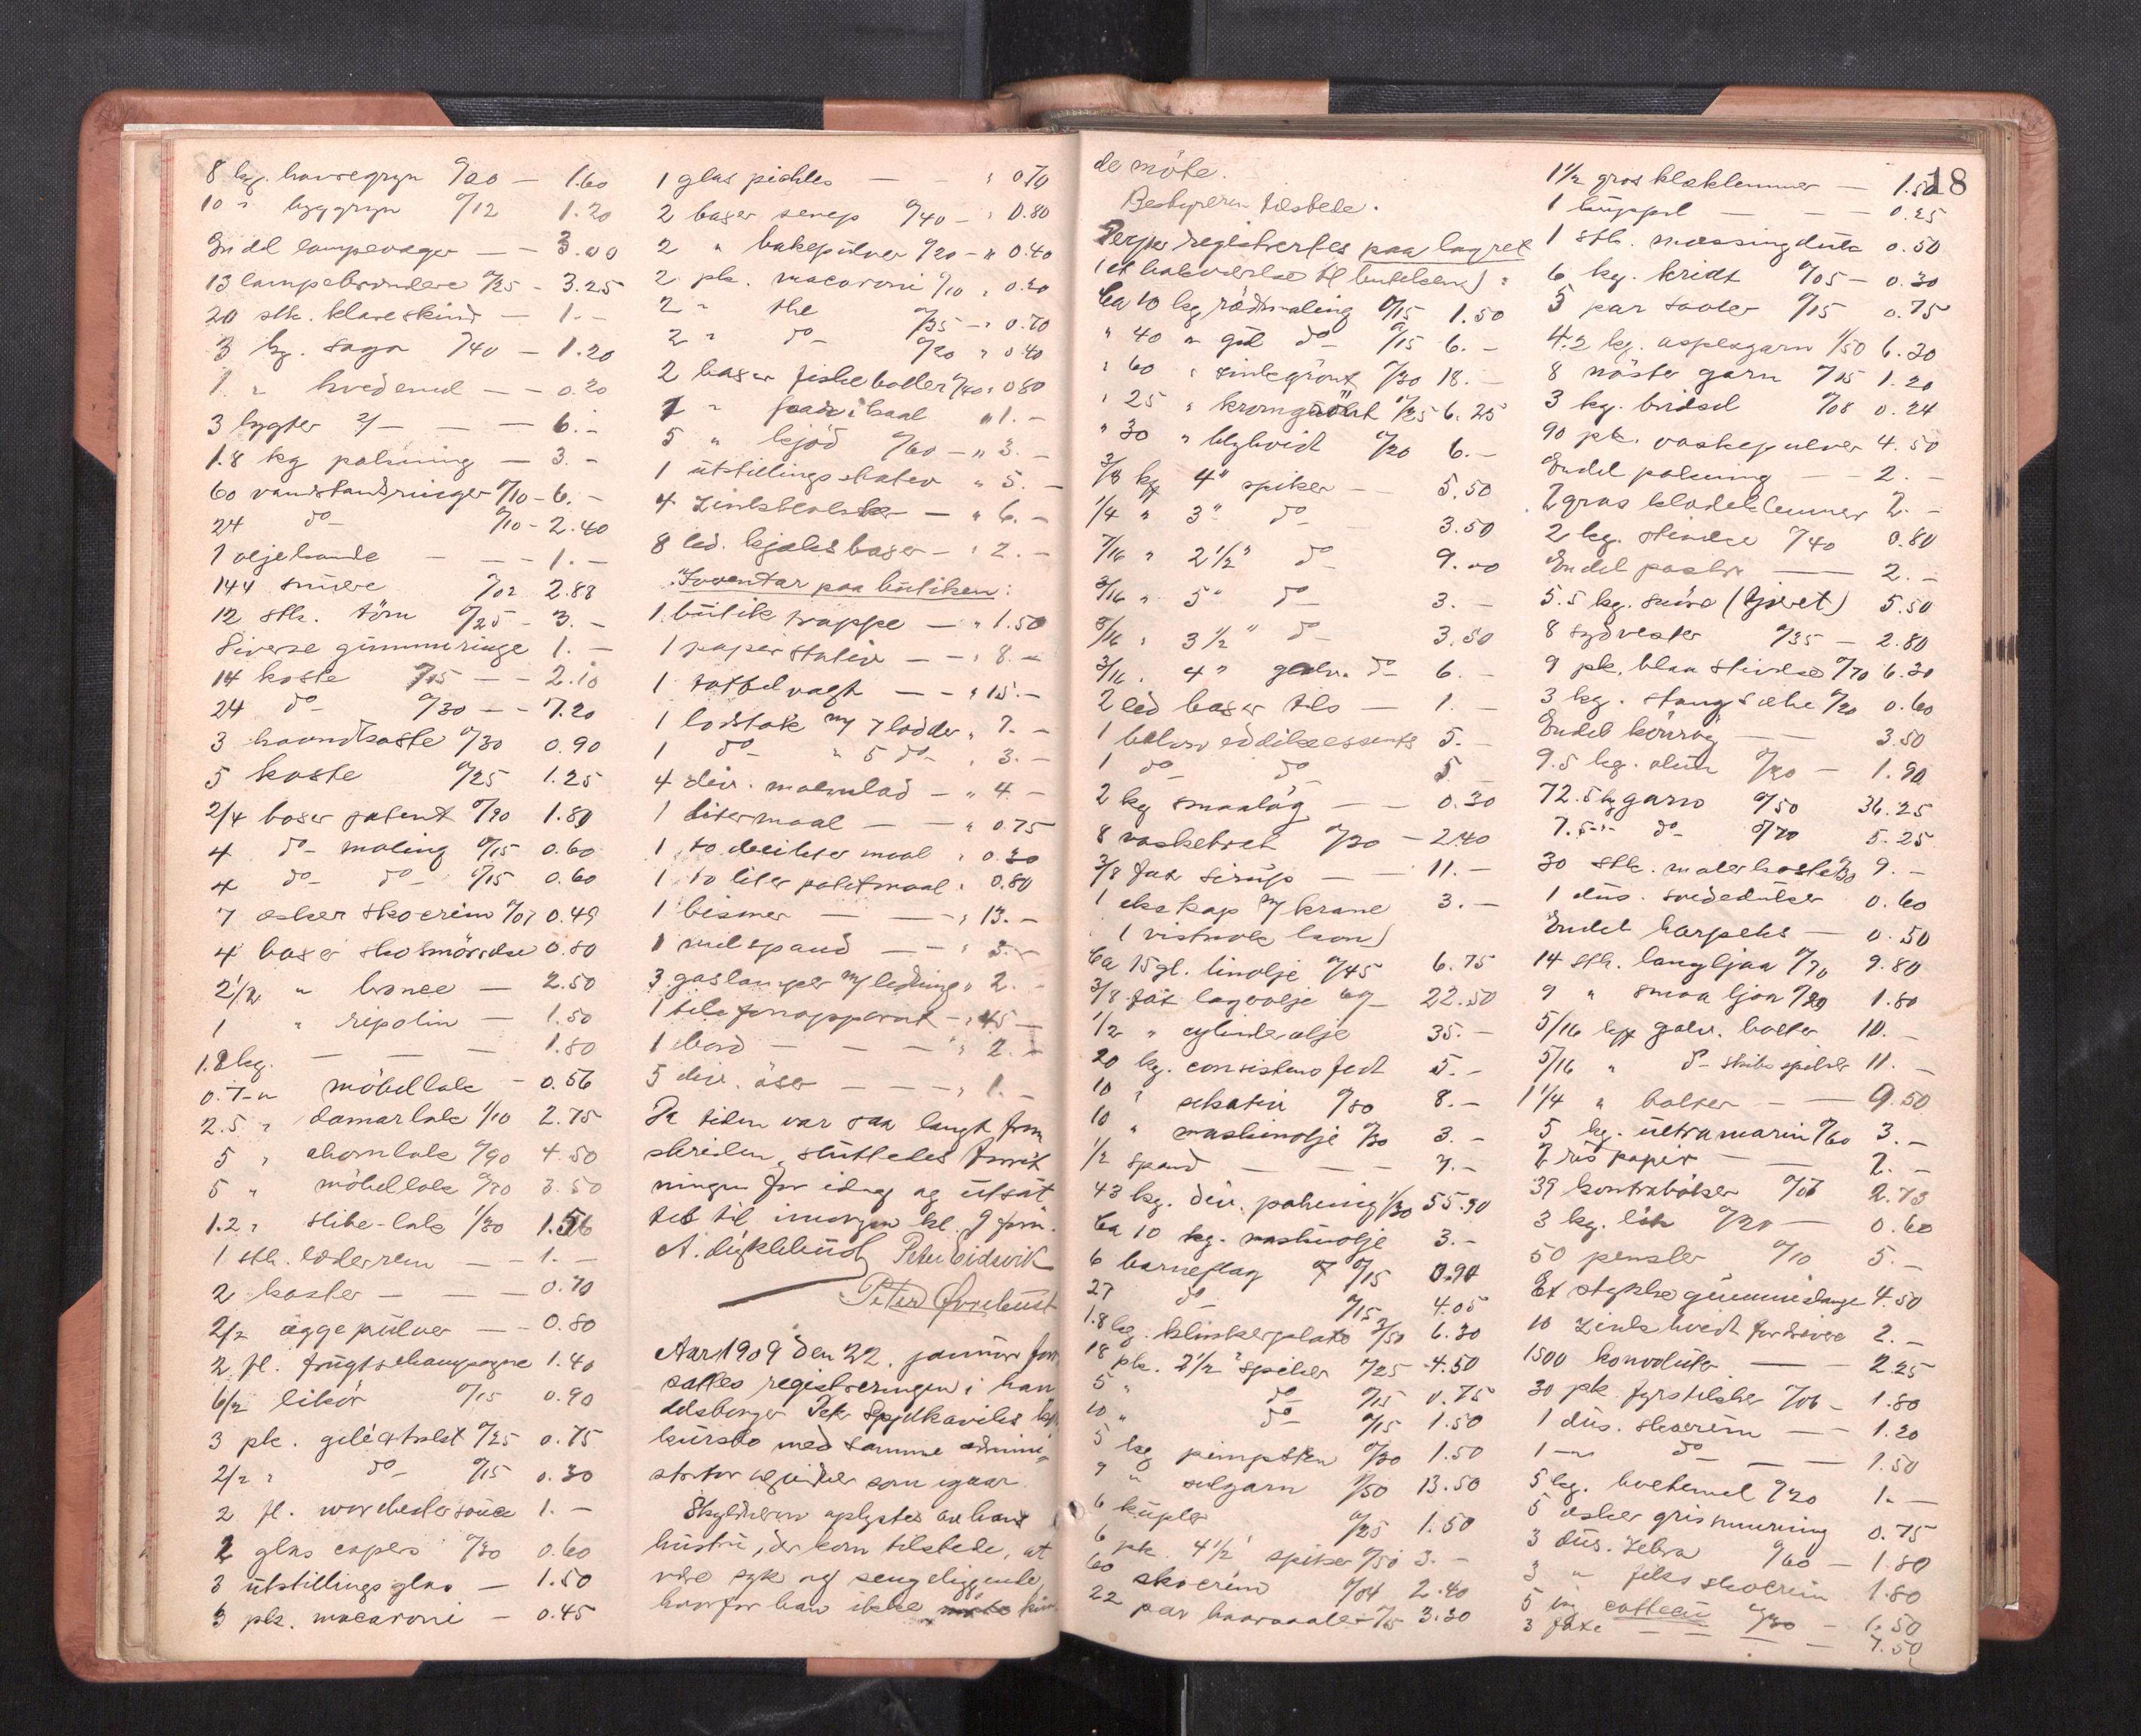 8 kg. havregryn %20 — 1.60
10 " byggryn %12 1.20
En del lampevæger — — 3.00
13 lampebrændere %25 - 3.25
20 stk. klareskind — 1.-
3 kg. sago %40 — 1.20
1 " hvedemel — — 0.20
3 lygter 2/- — — 6.-
1.8 kg pakning — 3.-
60 vandstandsringer %10 - 6.-
24 do %10 - 2.40
1 oljekande — — 1.-
144 snürer %02 2.88
12 stk. törn %25 - 3.-
Diverse gümmiringe 1.-
14 koste %15 — — 2.10
24 do %30 — — 7.20
3 haandkoste %30 0.90
5 koste %25 1.25
2/4 boxer patent %90 1.80
4 do maling %15 0.60
4 do do %15 0.60
7 æsker skocrém %07 0.49
4 boxer skosmörelse 0.80
2 1/2 " bronce — 2.50
1 " repolin — 1.50
1.8 kg. — — — 1.80
0.7 " möbellak - 0.56
2.5 " damarlak 1/10 2.75
5 " ahornlak %90 4.50
5 " möbellak %70 3.50
1.2 " slibe-lak 1/30 1.56
1 stk. læderrem — — 1.-
2 koster — — — 0.70
2/2 æggepülver — — 0.80
2 fl. frügtschampagne 1.40
6/2 likör %15 0.90
3 pk. gelé %25 0.75
2/2 " do %15 0.30
2 fl. worchestersauce 1.-
2 glas capers %30 0.60
3 ütstillingsglas — 1.50
3 pk. macaroni — 0.45
1 glas pickles — " 0.70
2 boxer senep %40 — " 0.80
2 " bakepülver %20 — " 0.40
2 pk. macaroni %10 " 0.20
2 " the %35 — " 0.70
2 " do %20 " 0.40
2 boxer fiskeboller %40 " 0.80
2 " faar i kaal " 1.-
5 " kjöd %60 — " 3.-
1 ütstillingsstativ " 5.-
4 — " 6.-
8 led. kjeksboxer — " 2.-
Inventar paa bütiken:
1 bütiktrappe — " 1.50
1 papirstativ — — " 8.-
1 taffelvegt — — " 15.-
1 lodstok m/ 7 lodder " 7.-
1 do " 5 do " 3.-
4 div. maallod — " 4.-
1 litermaal — — " 0.75
1 to deciliter maal " 0.30
1 to liter maal " 0.80
1 bismer — — " 13.-
1 melspand — — " 3.-
3 gaslamper m/ ledning " 2.-
1 telefonapparat — " 45.-
1 bord — — — " 2.-
5 div. öser — — " 1.-
Da tiden var saa langt frem
skriden, slüttedes forret
ningen for idag og ütsat
tes til imorgen kl. 9 form.
Peter Eidsvik
Peter
Aar 1909 den 22. janüar fort
sattes registreringen i han
delsborger Spjelkaviks kon
kürsbo med samme admini
strator og vidner som igaar.
Skyldneren oplystes av hans
hüstrü, der kom tilstede, at
være syk og sengeliggende,
hvorfor han ikke kün
18
de möte.
Bestyreren tilstede.
Derpaa registrertes paa lagret
(et bakværelse til butikken):
Ca 10 kg rödmaling %15 1.50
" 40 " gül do %15 6.-
" 60 " zinkgrönt %30 18.-
" 25 " kromgrönt %25 6.25
" 30 " blyhvidt %20 6.-
3/8 kg 4" spiker — 5.50
1/4 " 3" do 3.50
7/16 " 2 1/2" do 9.00
3/16 " 5" do 3.-
3/16 " 3 1/2" do 3.50
3/16 " 4" galv. do 6.-
2 led boxer — 1.-
1 ballon eddikessents 5.-
1 do do 5.-
2 kg smaalög — — 0.30
8 vaskebret %30 — 2.40
3/8 fat sirüp — — 11.-
1 m/ krane 3.-
Ca 15 gl. linolje %45 6.75
3/8 fat lagerolje 22.50
1/2 " cylinderolje 35.-
20 kg. consistensfedt 5.-
10 " sikativ %80 8.-
10 " maskinolje %30 3.-
1/2 spand — — — 7.-
43 kg. div. pakning 1/30 55.90
Ca 10 kg. maskinolje 3.-
6 barneflag %15 0.90
27 do %15 4.05
1.8 kg. klinkerplate 3/50 6.30
18 pk. 2 1/2" spiker %25 4.50
5 " do %15 0.75
10 " do %15 1.50
5 kg pimpsten %30 1.50
9 " seilgarn 1/50 13.50
6 küpler %25 1.50
6 pk. 4 1/2" spiker %50 3.-
60 skocrém %04 2.40
22 par haarsaaler %15 3.30
1 1/2 gros klæklemmer — 1.50
1 — — — 0.25
1 stk. messing 0.50
6 kg. kridt %05 — 0.30
5 par saaler %15 0.75
4.2 kg. aspesgarn 1/50 6.30
8 nöster garn %15 1.20
3 kg. %08 0.24
90 pk. vaskepulver 4.50
Endel pakning — — 2.-
2 gros klædeklemmer 2.-
2 kg. stivelse %40 0.80
Endel — 2.-
5.5 kg. snöre (tjæret) 5.50
8 sydvester %35 — 2.80
9 pk. blaa stivelse %70 6.30
3 kg. stangsæbe %20 0.60
Endel — — 3.50
9.5 kg. alün %20 — 1.90
72.5 kg garn %50 36.25
7.5 — do %70 5.25
30 stk. malerkoster %30 9.-
1 düs. 0.60
Endel harpeks — 0.50
14 stk. langljaa %70 9.80
9 " smaa ljaa %20 1.80
5/16 kg galv. bolter 10.-
5/16 " do skibsspiker 11.-
1 1/4 " bolter — — 9.50
5 kg. ültramarin %60 3.-
2 ris papir — — 2.-
39 kontrabøker %07 2.73
3 kg. %20 — 0.60
50 pensler %10 5.-
Et stykke gümmislange 4.50
10 Zinkhvidt fordrivere 2.-
1500 konvolüter — 2.25
30 pk. fyrstikker %06 — 1.80
1 düs. skocrém — — 1.20
1 — do — — 1.50
5 kg. %20 1.-
5 æsker 0.75
3 düs. Zebra %60 — 1.80
3 " skocrém 1.80
5 1.50
3 fate — — — 7.50